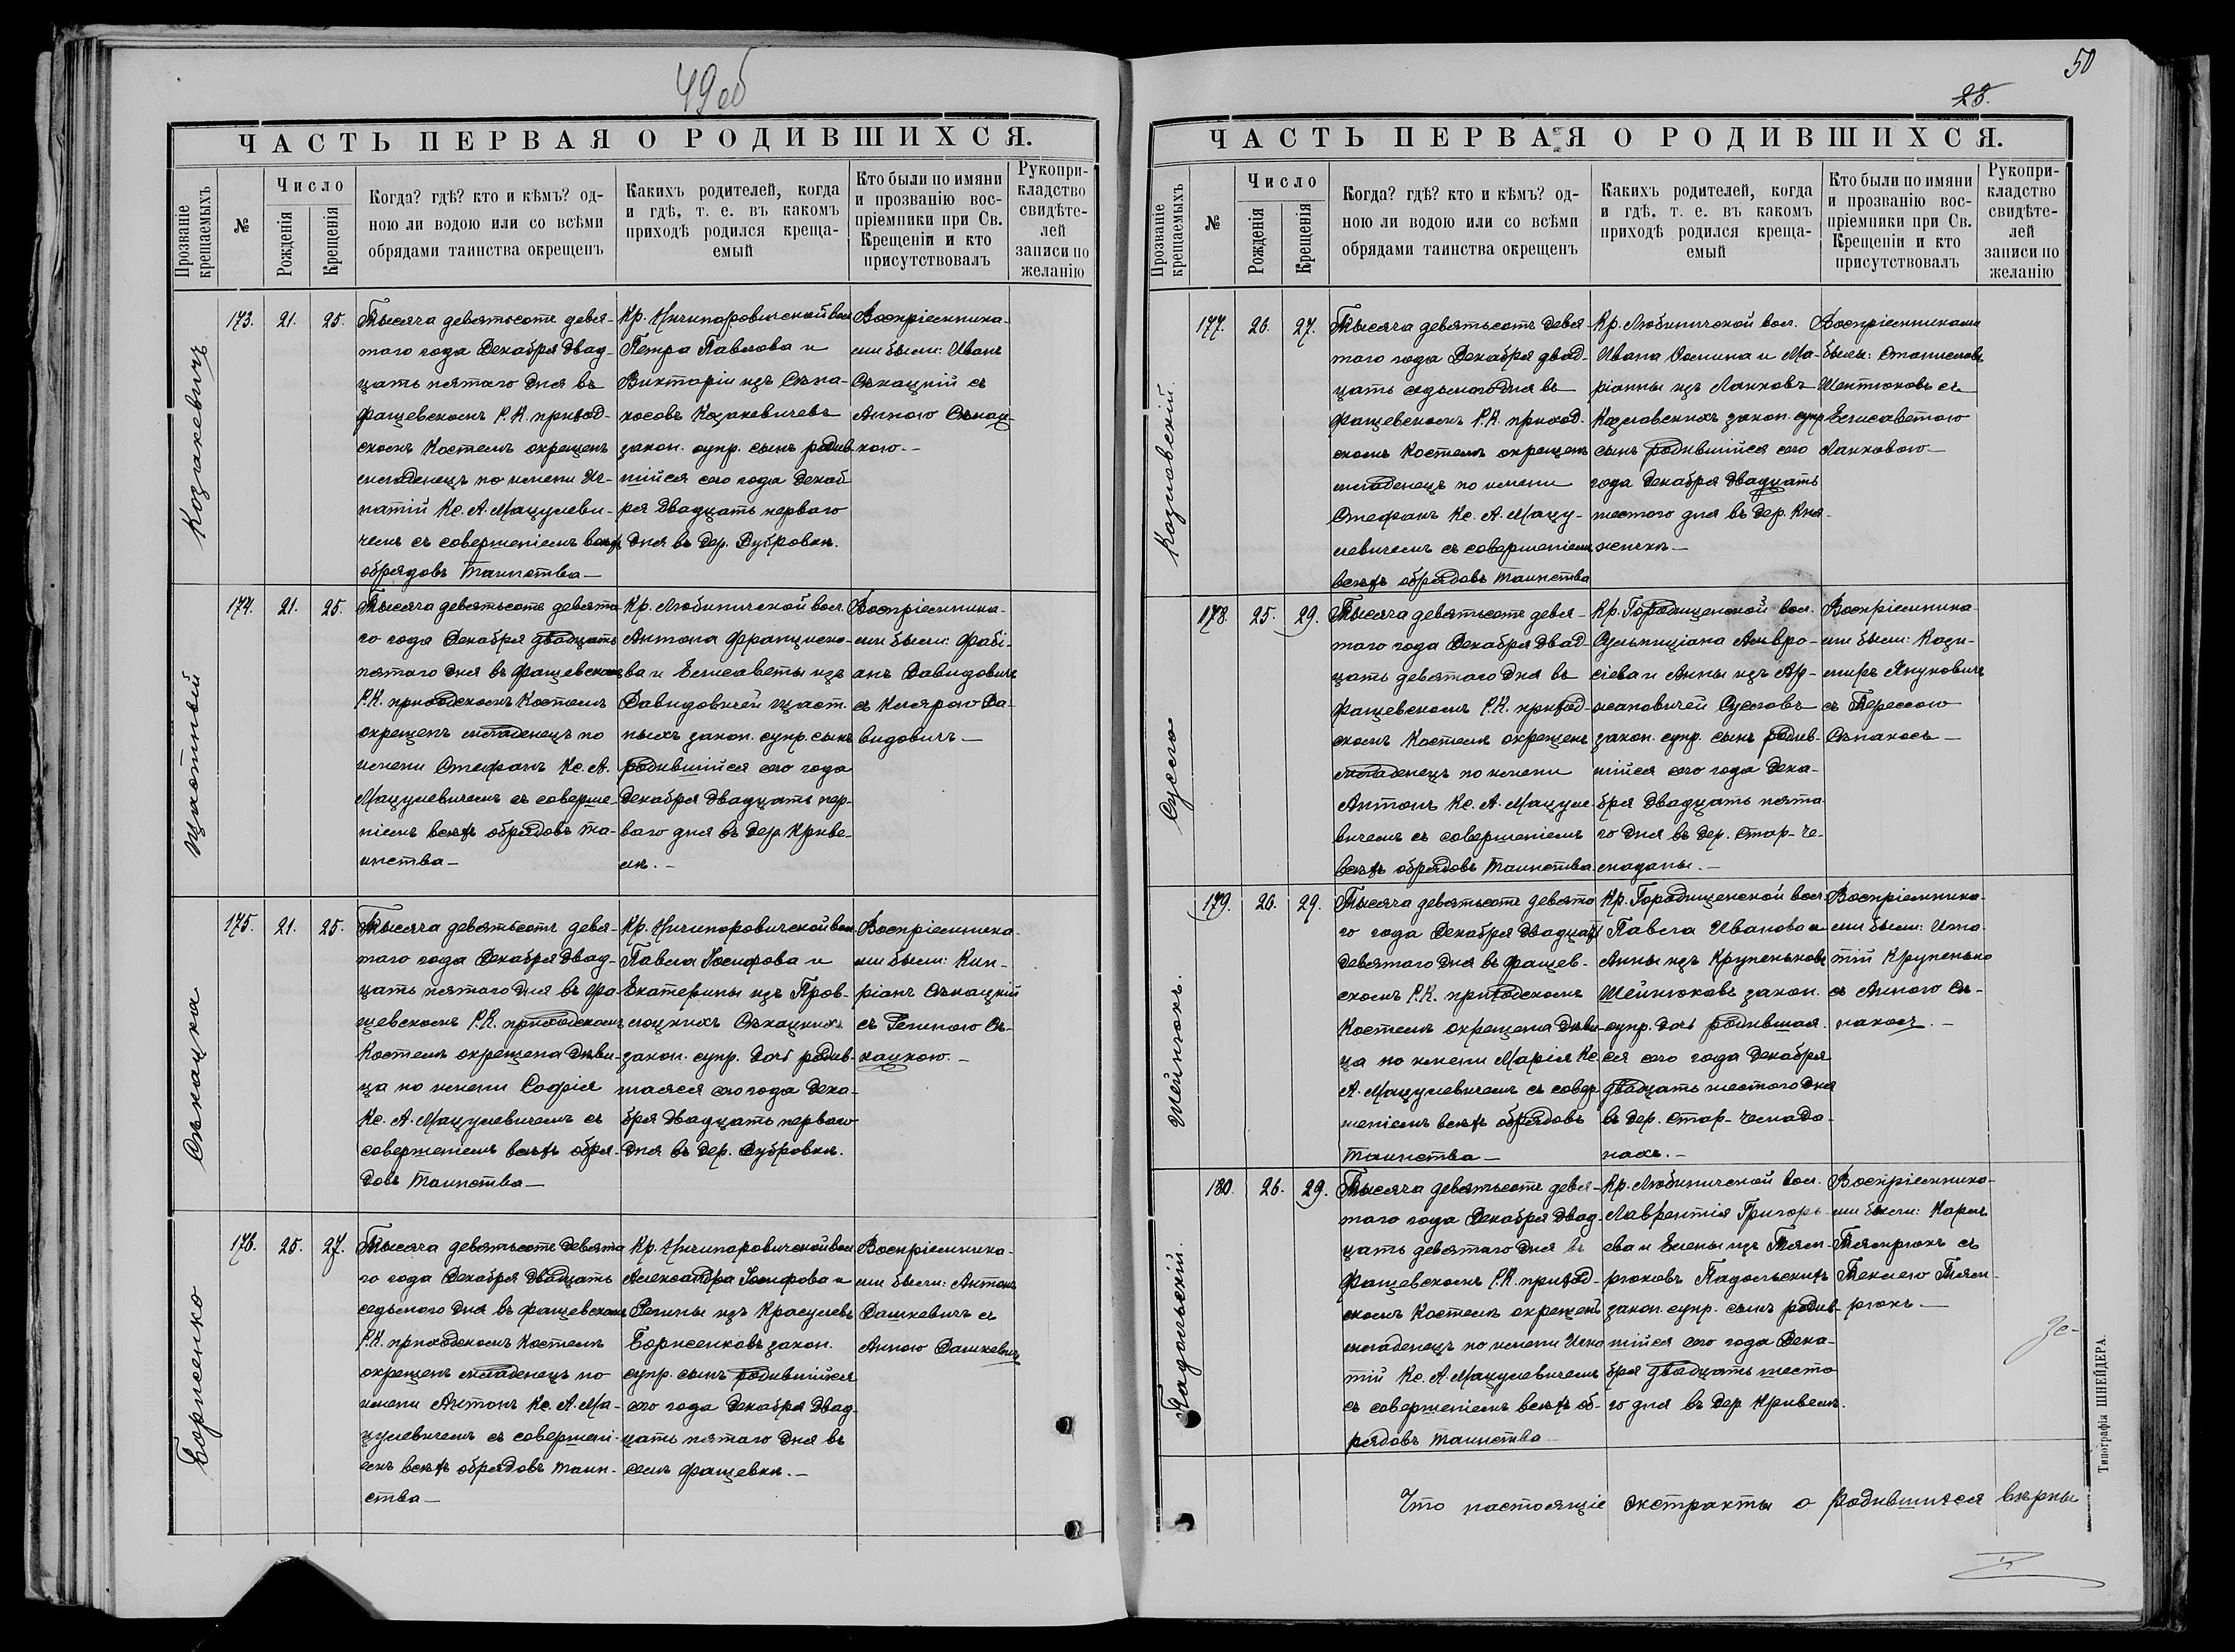 49об
ЧАСТЬ ПЕРВАЯ О РОДИВШИХСЯ.
Прозваніе крещаемыхъ
№
Число
Рожденія
Крещенія
Когда? гдѣ? кто и кѣмъ? од-
ною ли водою или со всѣми
обрядами таинства окрещенъ
Какихъ родителей, когда
и гдѣ, т. е. въ какомъ
приходѣ родился креща-
емый
Кто были по имяни
и прозванію вос-
пріемники при Св.
Крещеніи и кто
присутствовалъ
Рукопри-
кладство
свидѣте-
лей
записи по
желанію
Козакевичъ
173. 21. 25.
Тысяча девятьсотъ девя-
таго года Декабря двад-
цать пятаго дня въ
Фащевскомъ Р.К. приход-
скомъ Костелѣ окрещенъ
младенецъ по имени Иг-
натій Кс. А. Мацулеви-
чемъ съ совершеніемъ всѣхъ
обрядовъ Таинства—
Кр. Ничипоровичской вол
Петра Павлова и
Викторіи изъ Сѣна-
косовъ Козакевичевъ
закон. супр. сынъ родив-
шійся сего года Декаб
ря двадцать перваго
дня въ дер. Дубровкѣ.
Воспріемника-
ми были: Иванъ
Сѣкацкій съ
Анною Сѣкац-
кою.—
174. 21. 25.
Тысяча девятьсотъ девята
го года Декабря двадцать
пятаго дня въ Фащевскомъ
Р.К. приходскомъ Костелѣ
окрещенъ младенецъ по
имени Стефанъ Кс. А.
Мацулевичемъ съ соверше-
ніемъ всѣхъ обрядовъ та-
инства—
Кр. Любиничской вол.
Антона Францишко-
ва и Елисаветы изъ
Давидовичей Щаст-
ныхъ закон. супр. сынъ
родившійся сего года
Декабря двадцать пер-
ваго дня въ дер. Криве-
лѣ.—
Воспріемника-
ми были: Фабі-
анъ Давидовичъ
съ Клярою Да-
видовичъ—
Сѣкацка
175. 21. 25.
Тысяча девятьсотъ девя-
таго года Декабря двад-
цать пятаго дня въ Фа-
щевскомъ Р.К. приходскомъ
Костелѣ окрещена дѣви-
ца по имени Софія
Кс. А. Мацулевичемъ съ
совершеніемъ всѣхъ обря-
довъ Таинства—
Кр. Ничипоровичской вол.
Павла Іосифова и
Екатерины изъ Пров-
лоцкихъ Сѣкацкихъ
закон. супр. дочь родив-
шаяся сего года Дека-
бря двадцать перваго
дня въ дер. Дубровкѣ.
Воспріемника-
ми были: Кип-
ріанъ Сѣкацкій
съ Региною Сѣ-
кацкою.—
Борисенко
176. 25. 27.
Тысяча девятьсотъ девята
го года Декабря двадцать
седьмого дня въ Фащевскомъ
Р.К. приходскомъ Костелѣ
окрещенъ младенецъ по
имени Антонъ Кс. А. Ма-
цулевичемъ съ совершені-
емъ всѣхъ обрядовъ Таин-
ства—
Кр. Ничипоровичской вол
Александра Іосифова и
Регины изъ Красулевъ
Борисенковъ закон.
супр. сынъ родившійся
сего года Декабря двад-
цать пятаго дня въ
селѣ Фащевкѣ.—
Воспріемника-
ми были: Антонъ
Дашкевичъ съ
Анною Дашкевичъ
50
25.
ЧАСТЬ ПЕРВАЯ О РОДИВШИХСЯ.
Прозваніе крещаемыхъ
№
Число
Рожденія
Крещенія
Когда? гдѣ? кто и кѣмъ? од-
ною ли водою или со всѣми
обрядами таинства окрещенъ
Какихъ родителей, когда
и гдѣ, т. е. въ какомъ
приходѣ родился креща-
емый
Кто были по имяни
и прозванію вос-
пріемники при Св.
Крещеніи и кто
присутствовалъ
Рукопри-
кладство
свидѣте-
лей
записи по
желанію
Козловскій.
177. 26. 27.
Тысяча девятьсотъ девя
таго года Декабря двад-
цать седьмого дня въ
Фащевскомъ Р.К. приход-
скомъ Костелѣ окрещенъ
младенецъ по имени
Стефанъ Кс. А. Мацу-
левичемъ съ совершеніемъ
всѣхъ обрядовъ Таинства
Кр. Любиничской вол.
Ивана Осипа и Ма-
ріанны изъ Ланковъ
Козловскихъ закон. супр
сынъ родившійся сего
года Декабря двадцать
шестого дня въ дер. Кня-
жичи—
Воспріемниками
были: Станиславъ
съ
Елисаветою
Ланковою—
Сусло
178. 25. 29.
Тысяча девятьсотъ девя-
таго года Декабря двад-
цать девятаго дня въ
Фащевскомъ Р.К. приход-
скомъ Костелѣ окрещенъ
младенецъ по имени
Антонъ Кс. А. Мацуле-
вичемъ съ совершеніемъ
всѣхъ обрядовъ Таинства
Кр. Городищенской вол.
Сульпиціана Амвро-
сіева и Анны изъ Ар-
жановичей Сусловъ
закон. супр. сынъ родив-
шійся сего года Дека-
бря двадцать пята
го дня въ дер. Стар-Че-
маданы.—
Воспріемника-
ми были: Кази-
миръ Януковичъ
съ Терессою
Сѣнакосъ—
Шейнюкъ.
179. 26. 29.
Тысяча девятьсотъ девята
го года Декабря двадцать
девятаго дня въ Фащев-
скомъ Р.К. приходскомъ
Костелѣ окрещена дѣви-
ца по имени Марія Кс.
А. Мацулевичемъ съ совер-
шеніемъ всѣхъ обрядовъ
Таинства—
Кр. Городищенской вол
Павла Иванова и
Анны изъ Крупеньковъ
Шейнюковъ закон.
супр. дочь родившая-
ся сего года Декабря
двадцать шестого дня
въ дер. Стар-Чемода-
нахъ.—
Воспріемника-
ми были: Игна-
тій Крупенько
съ Анною Сѣ-
накосъ.—
Падольскій.
180. 26. 29.
Тысяча девятьсотъ девя-
таго года Декабря двад-
цать девятаго дня въ
Фащевскомъ Р.К. приход-
скомъ Костелѣ окрещенъ
младенецъ по имени Игна
тій Кс. А. Мацулевичемъ
съ совершеніемъ всѣхъ об-
рядовъ таинства
Кр. Любиничской вол.
Лаврентія Григорь-
ева и Елены изъ Тям-
рюковъ Падольскихъ
закон. супр. сынъ родив-
шійся сего года Дека-
бря двадцать шесто
го дня въ дер Кривелѣ.
Воспріемника-
ми были: Карлъ
Тямрюкъ съ
Теклею Тям-
рюкъ.—
Что настоящіе экстракты о родившихся вѣрны
Типографія ШНЕЙДЕРА.